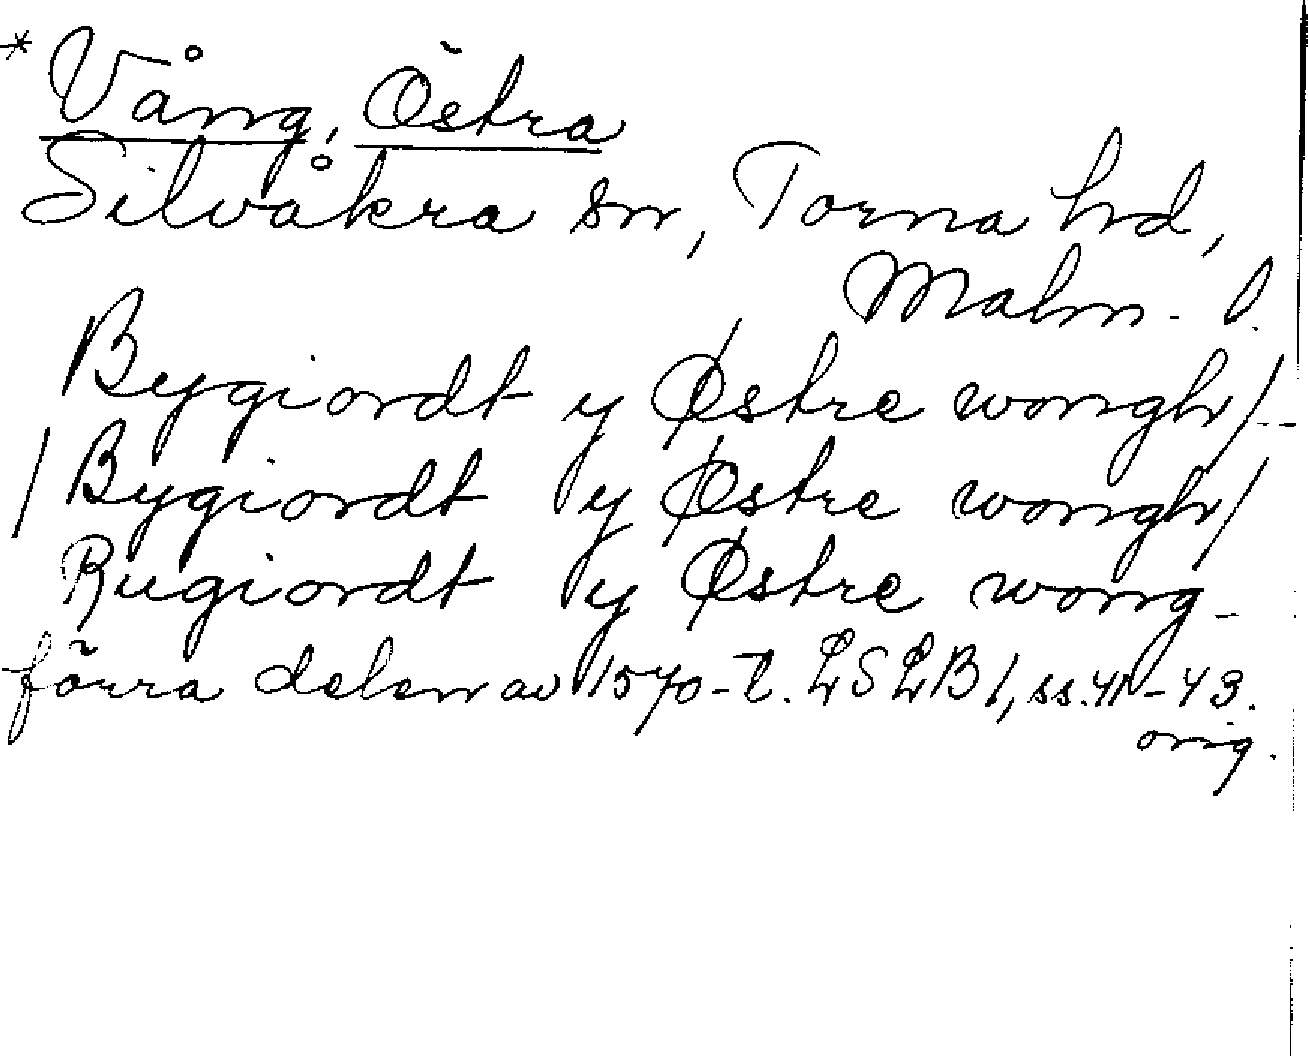 * Vång, Östra
Silvåkra sn, Torna hd,
Malm. l.
Bygiordt y Østre wongh/-
/Bygiordt y Østre wongh/
Rugiordt y Østre wong-
förra delen av 1570-t. LSLB 1, ss. 41-43.
orig.